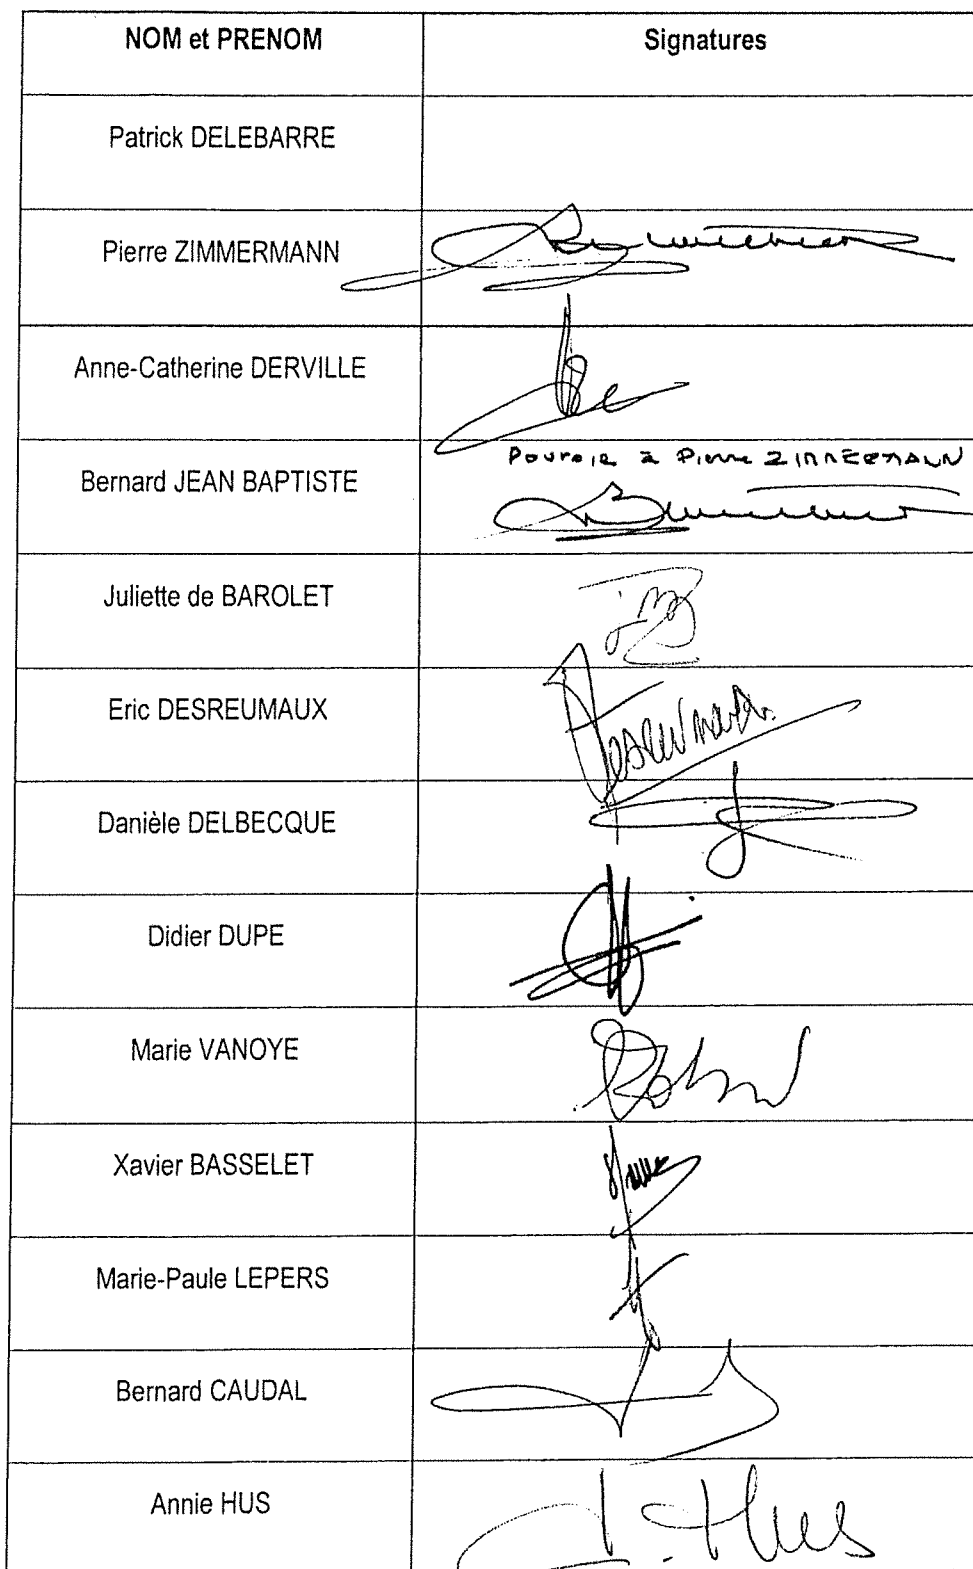 NOM et PRENOM Signatures
Patrick DELEBARRE
Pierre ZIMMERMANN
Anne-Catherine DERVILLE
Bernard JEAN BAPTISTE Pouvoir à Pierre ZIMMERMANN
Juliette de BAROLET
Eric DESREUMAUX
Danièle DELBECQUE
Didier DUPE
Marie VANOYE
Xavier BASSELET
Marie-Paule LEPERS
Bernard CAUDAL
Annie HUS